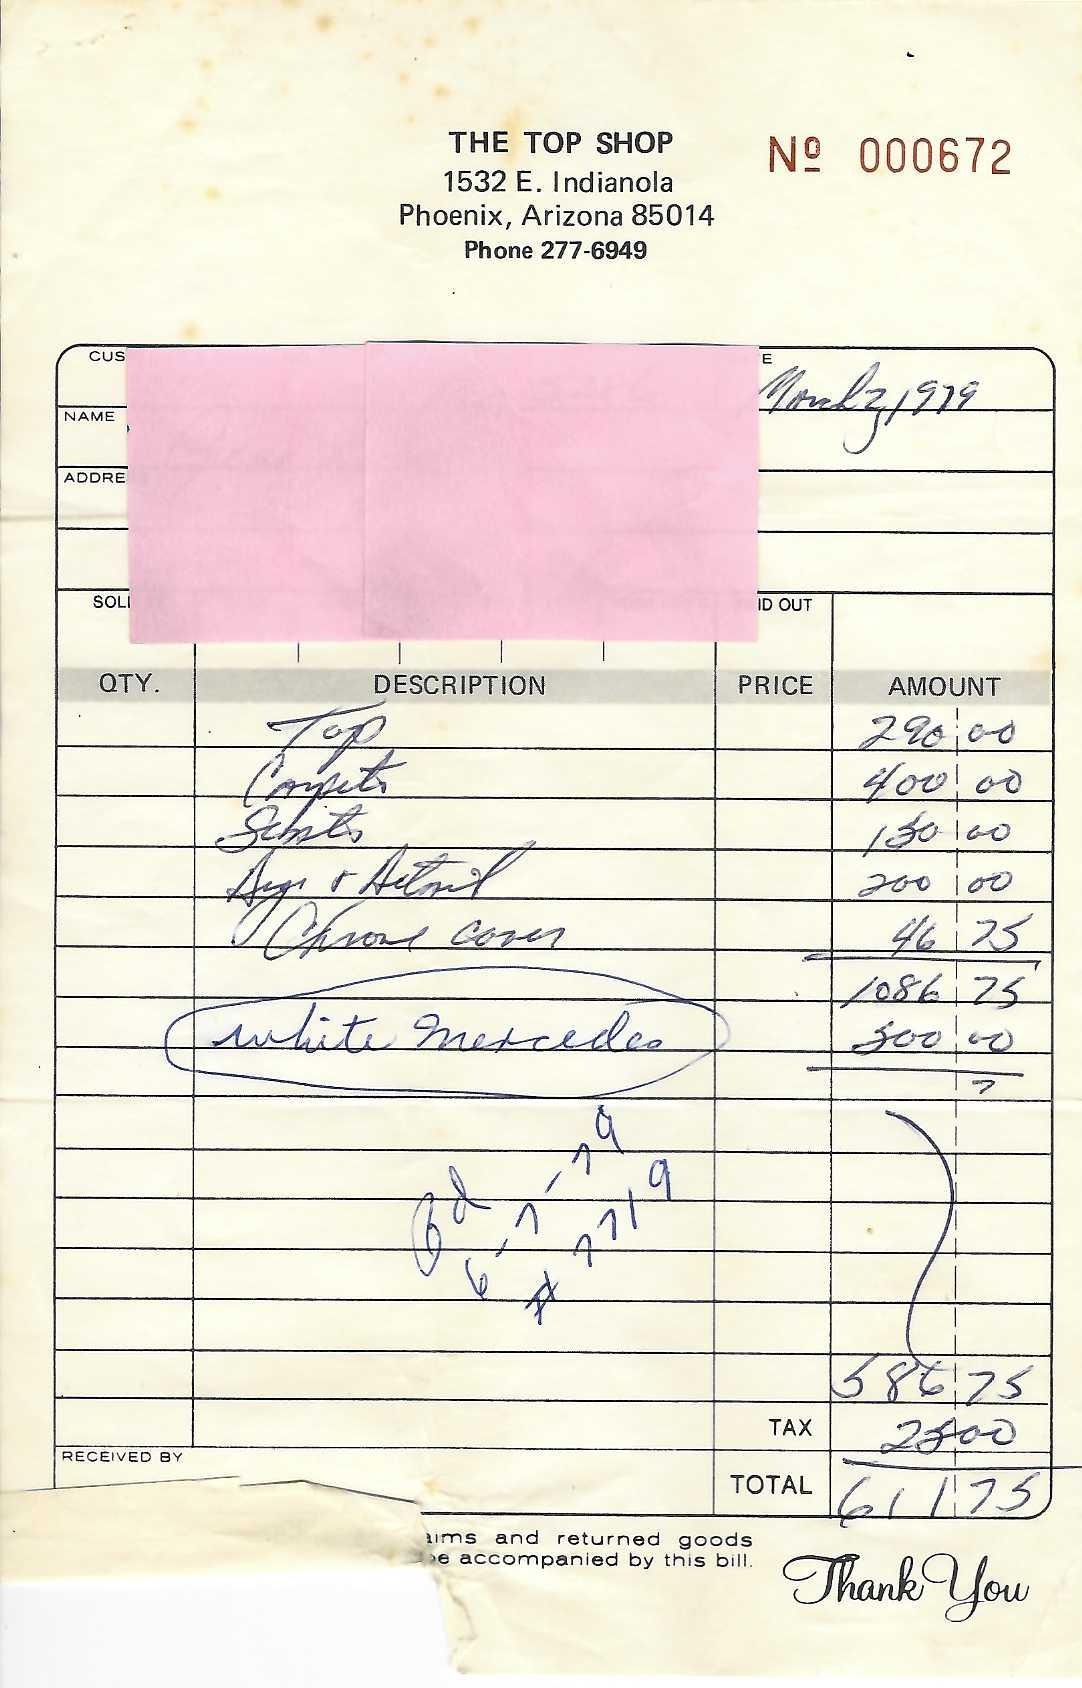 THE TOP SHOP
Nº 000672
1532 E. Indianola
Phoenix, Arizona 85014
Phone 277-6949
CUS
E
March 2, 1979
NAME
ADDRE
SOL
ID OUT
QTY. DESCRIPTION PRICE AMOUNT
Top 290 00
Carpets 400 00
150 00
Dye & Detail 200 00
Chrome cover 46 75
1086 75
white Mercedes 500 00
Pd
6-7-79
# 7719
586 75
TAX 25 00
RECEIVED BY
TOTAL 611 75
aims and returned goods
be accompanied by this bill.
Thank You